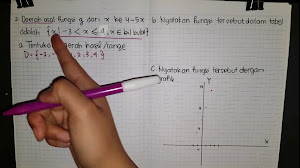 2. Daerah asal fungsi g dari x ke 4-5x
adalah {x| -3 < x ≤ 4, x ∈ bil bulat}
a. Tentukan daerah hasil/range
D = {-2, 2, 3, 4}
b. Nyatakan fungsi tersebut dalam tabel
c. Nyatakan fungsi tersebut dengan
grafik